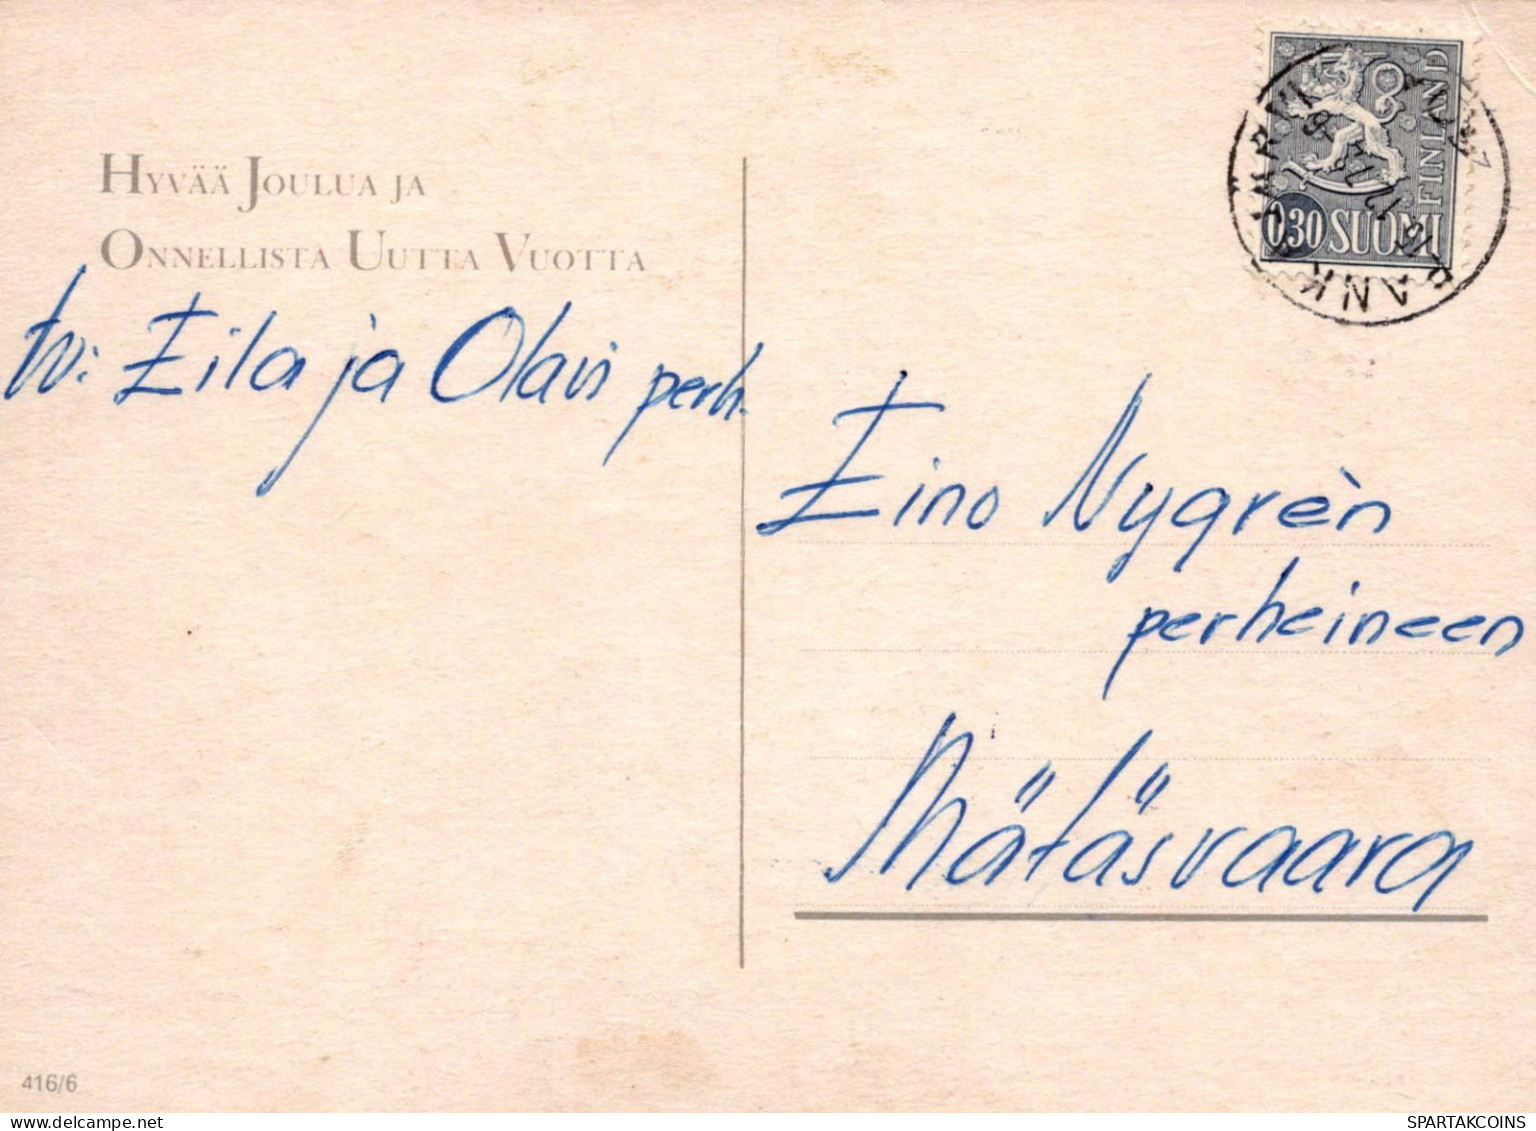 HYVÄÄ JOULUA JA
ONNELLISTA UUTTA VUOTTA
tv: Eila ja Olavi perh.
FINLAND
0,30 SUOMI
Eino Nygrèn
perheineen
Mätäsvaara
416/6
SPARTAKCOINS.COM